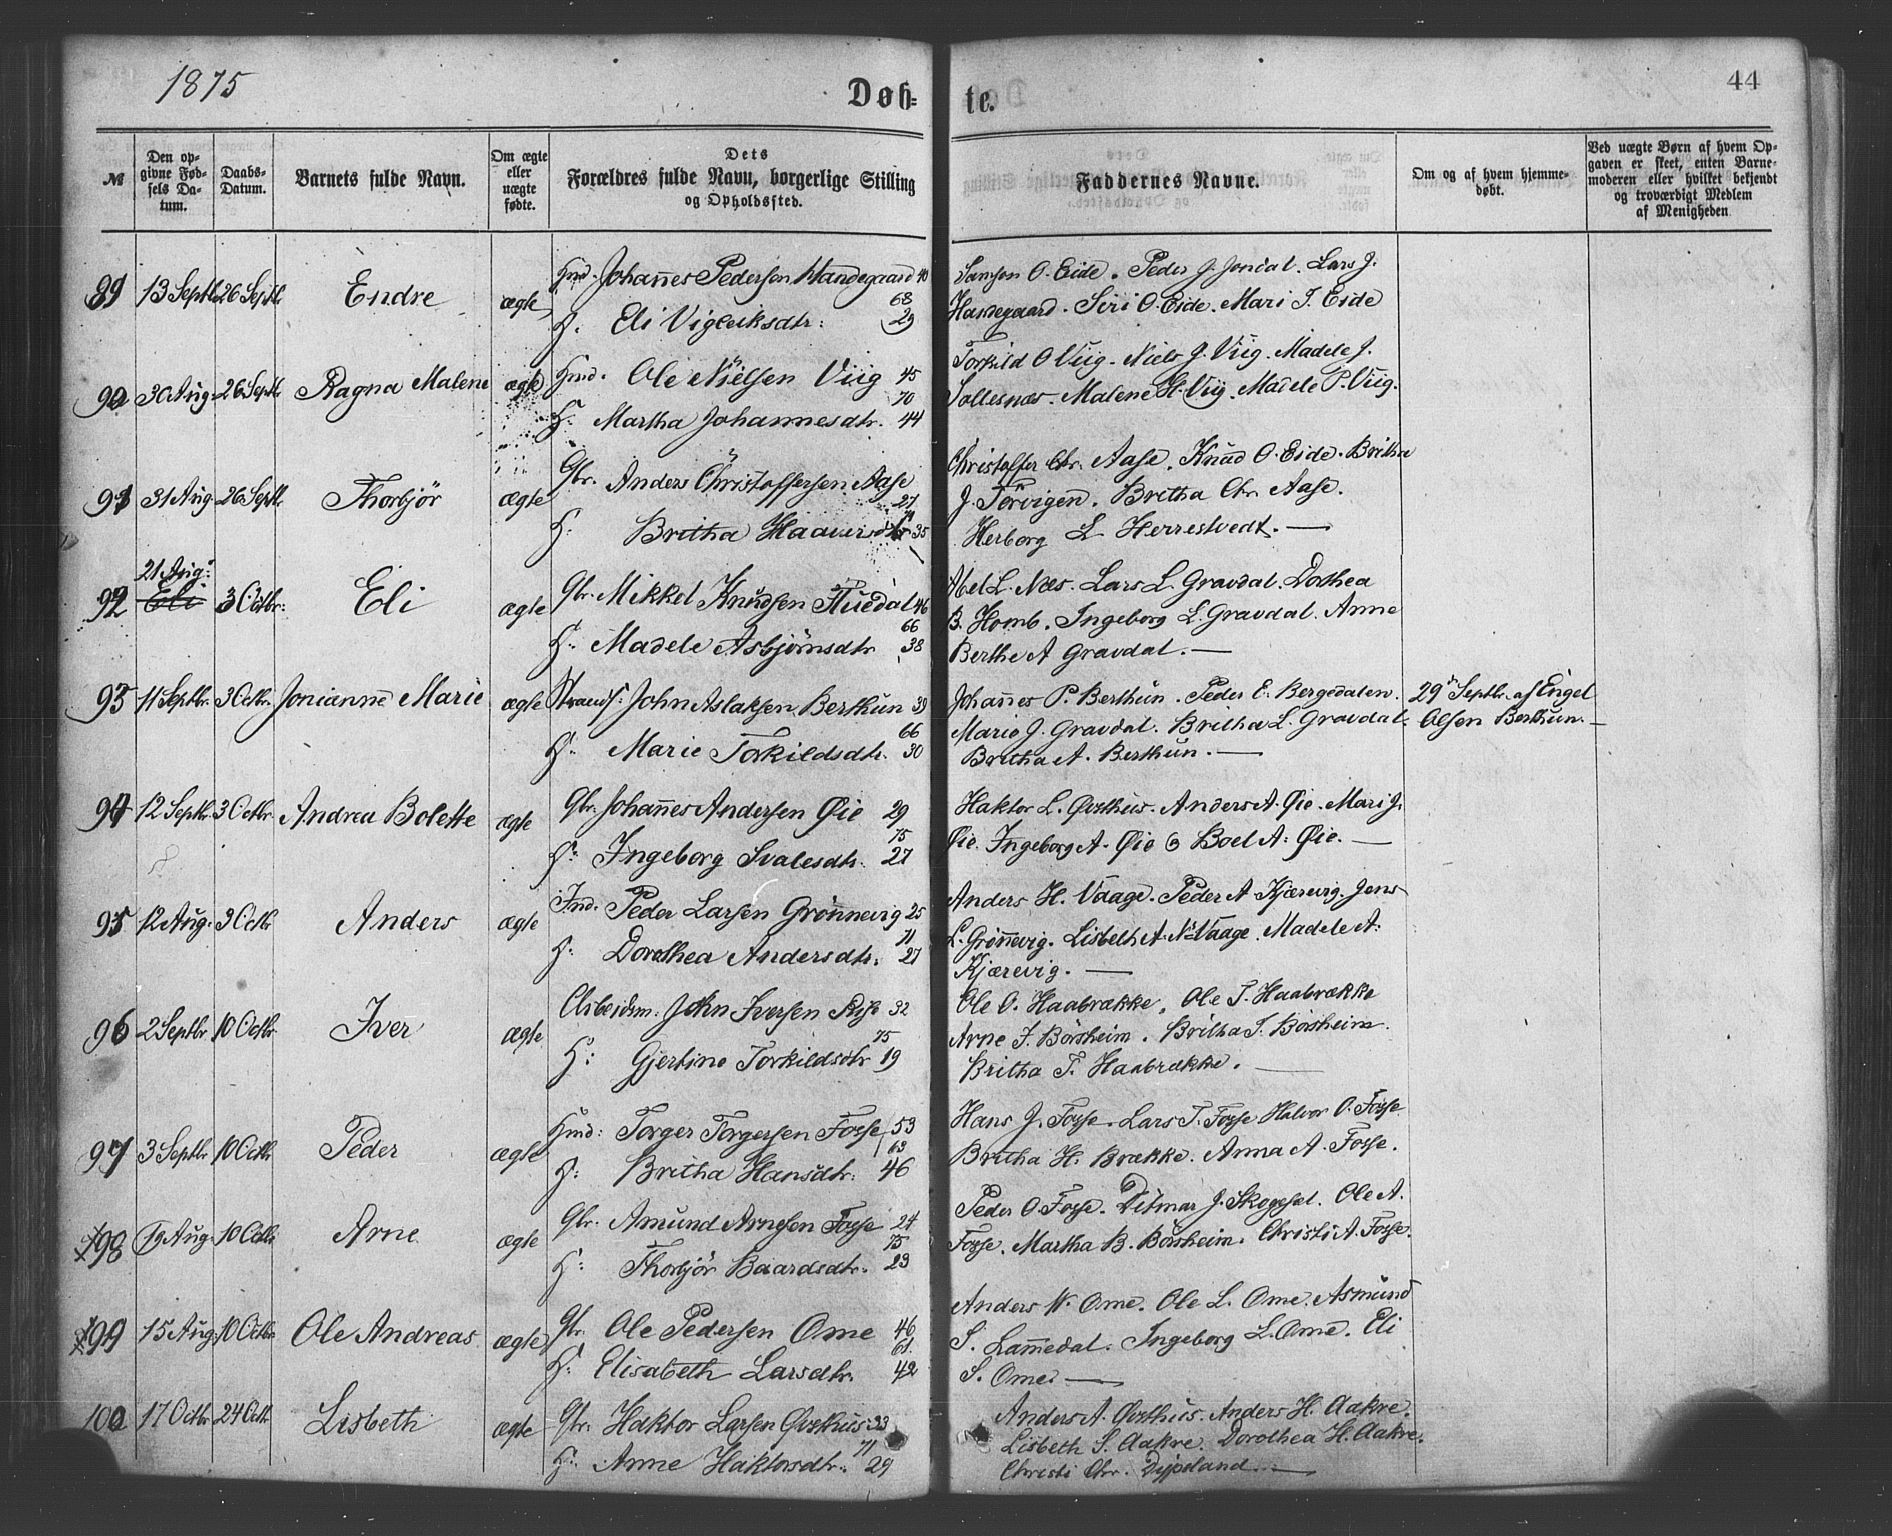 1875
Døb=
te.
44
№
Den opgivne Fødsels Datum.
Daabs-Datum.
Barnets fulde Navn.
Om ægte eller uægte fødte.
Dets Forældres fulde Navn, borgerlige Stilling og Opholdssted.
Faddernes Navne.
Om og af hvem hjemmedøbt.
Ved uægte Børn af hvem Opgaven er skeet, enten Barnemoderen eller hvilket bekjendt og troværdigt Medlem af Menigheden
89 13 Septbr 26 Septbr Endre ægte Hmd. Johannes Pedersen Handegaard 40
68
H. Eli Vigleiksdtr: 29
Samson O. Eide. Peder J. Jondal. Lars J.
Handegaard. Siri O. Eide. Mari T. Eide
90 30 Aug. 26 Septbr Ragna Malene ægte Hmd. Ole Nielsen Viig 45
70
H. Martha Johannesdtr. 44
Torkild O Viig. Niels J. Viig. Madele J.
Sollesnæs. Malene H. Viig. Madele P. Viig.
91 31 Aug. 26 Septbr. Thorbjør ægte Gbr. Anders Christoffersen Aase
27
H: Britha Haaversdtr 35
Christoffer Chr. Aase. Knud O. Eide. Britha
J. Torvigen. Britha Chr. Aase.
Herborg L Herrestvedt. —
92 21 Aug: Eli 3 Octbr: Eli ægte Gbr. Mikkel Knudsen Fluedal 46
66
H: Madele Asbjørnsdtr 38
Abel L. Næs. Lars L. Gravdal. Dorthea
B. Homb. Ingeborg L. Gravdal. Anne
Berthe A Gravdal. —
93 11 Septbr. 3 Octbr. Jonianne Marie ægte Strands: John Aslaksen Berthun 39
66
H: Marie Torkildsdtr. 30
Johannes P. Berthun. Peder E. Bergedalen.
Marie J. Gravdal. Britha L. Gravdal.
Britha A. Berthun. —
29 Septbr. af Engel
Olsen Berthun. —
94 12 Septbr. 3 Octbr. Andrea Bolette ægte Gbr. Johannes Andersen Øie 29
75
H: Ingeborg Svalesdtr. 27
Haktor L. Qvithus. Anders A. Øie. Mari J.
Øie. Ingeborg A. Øie o Boel A. Øie. —
95 12 Aug. 3 Octbr Anders ægte Ind. Peder Larsen Grønnevig 25
71
H: Dorothea Andersdtr. 27
Anders H. Vaage. Peder A Kjærevig. Jens
L. Grønnevig. Lisbeth A. N. Vaage. Madele A.
Kjærevig. —
96 2 Septbr 10 Octbr. Iver ægte Arbeidsm. John Iversen 32
75
H: Gjertine Torkildsdtr 19
Ole O. Haabrække. Ole T. Haabrække
Arne J. Børsheim. Britha T. Børsheim.
Britha T. Haabrække. —
97 3 Septbr. 10 Octbr Peder ægte Hmd: Torger Torgersen Fosse 53
63
H: Britha Hansdtr. 46
Hans J. Fosse. Lars T. Fosse Halvor O. Fosse
Britha H. Brække. Anna A. Fosse.
98 19 Aug. 10 Octbr Arne ægte Gbr. Amund Arnesen Fosse 24
75
H: Thorbjør Baardsdtr. 23
Peder O. Fosse. Ditmar J. Skogsel. Ole A.
Fosse. Martha B. Børsheim. Christi A. Fosse.
99 15 Aug. 10 Octbr Ole Andreas ægte Gbr. Ole Pedersen Ome 46
61
H: Elisabeth Larsdtr. 42
Anders N. Ome. Ole L. Ome. Asmund
S. Lammedal. Ingeborg L. Ome. Eli
S. Ome. —
100 17 Octbr 24 Octbr. Lisbeth ægte Gbr. Haktor Larsen Qvithus 33
71
H: Anne Haktorsdtr. 29
Anders A. Qvithus. Anders H. Aakre.
Lisbeth S. Aakre. Dorothea H. Aakre.
Christi Chr. Dypeland. —